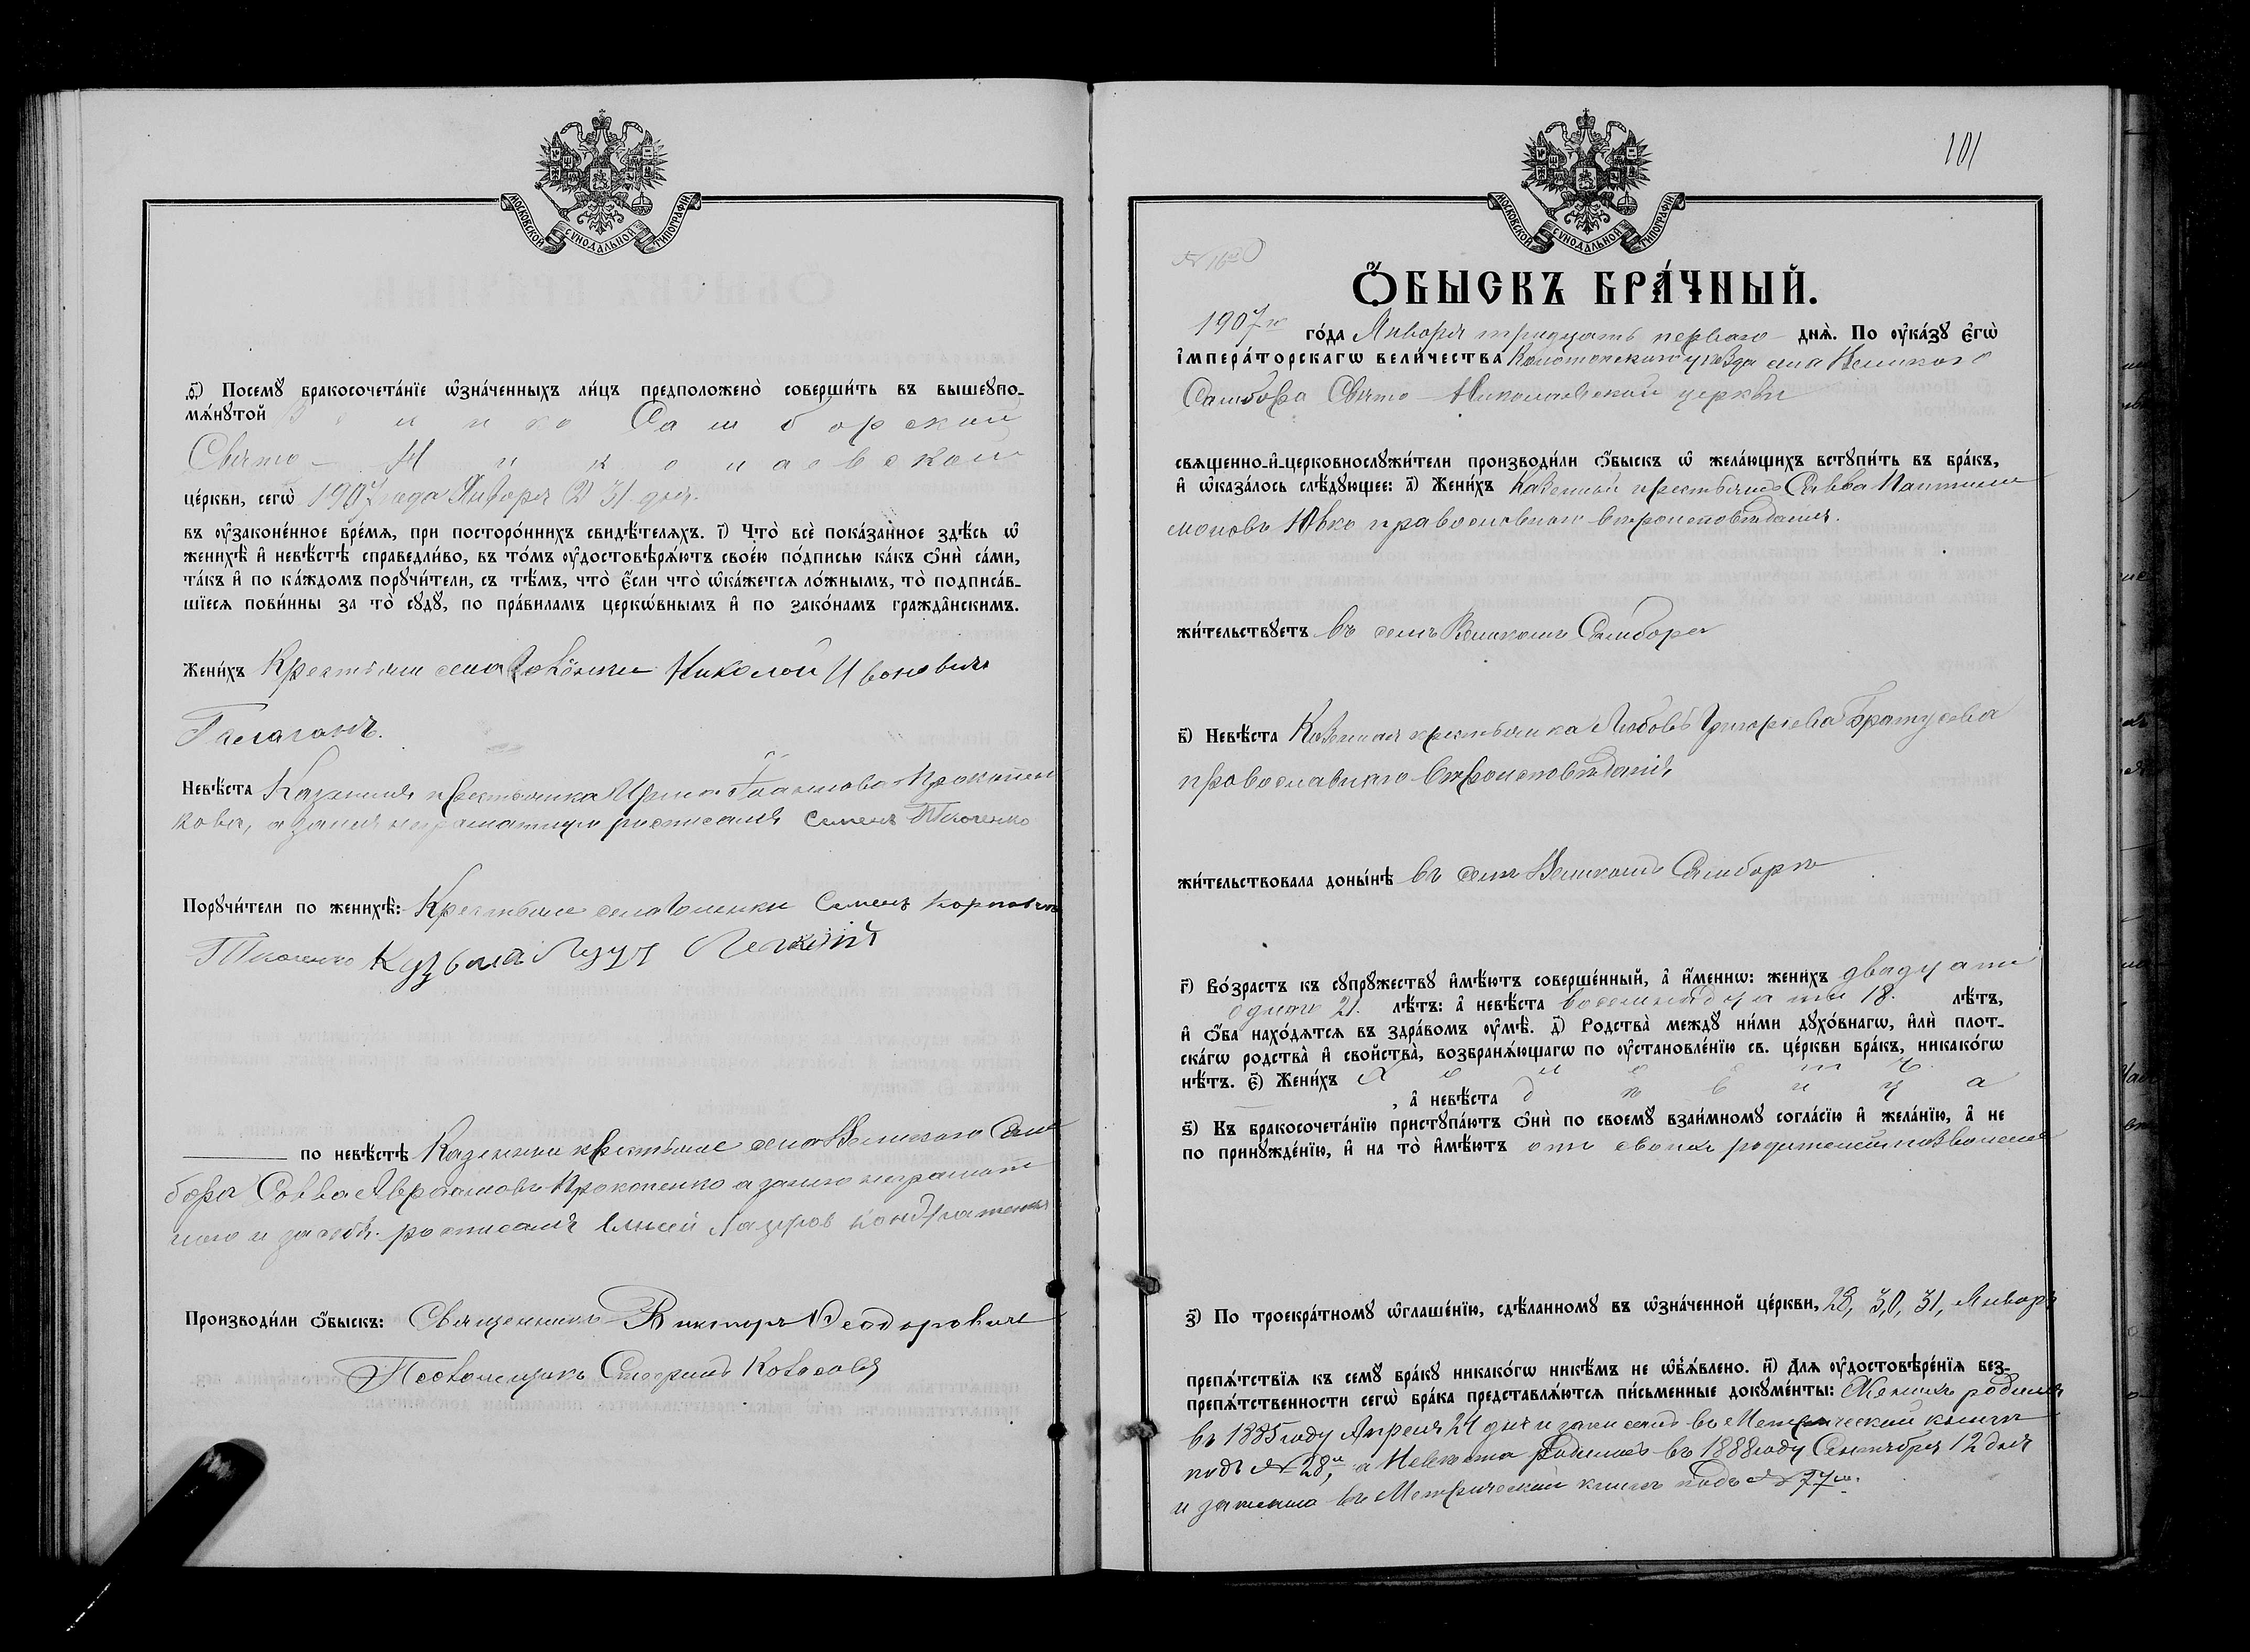 МОСКОВСКОЙ СѴНОДАЛЬНОЙ ТИПОГРАФІИ
Ѳ҃) Посемꙋ̀ бракосочета́нїе ѡ҆зна́ченныхъ ли́цъ предположенѡ̀ соверши́ть въ вышеꙋпо-
мѧ́нꙋтой Велико Самборской
Свято-Николаевской
це́ркви, сегѡ̀ 1907 года Января 31 дня.
въ оу҆законе́нное вре́мѧ, при посторо́ннихъ свидѣ́телѧхъ. і҃) Что̀ всѐ пока́занное здѣ́сь ѡ҆
женихѣ̀ и҆ невѣ́стѣ справедли́во, въ то́мъ оу҆достовѣрѧ́ютъ своє́ю по́дписью ка́къ ѻ҆нѝ са́ми,
та́къ и҆ по ка́ждомъ порꙋчи́тели, съ тѣ́мъ, что̀ є҆́сли что̀ ѡ҆ка́жетсѧ ло́жнымъ, то̀ подписа́в-
шїесѧ пови́нны за то̀ сꙋдꙋ̀, по пра́виламъ церкѡ́внымъ и҆ по зако́намъ гражда̂нскимъ.
Жени́хъ Крестьян села Николай Ивановичъ
Галаганъ.
Невѣ́ста Казенная крестьянка Ирина Прокопен
кова, а за нея неграматную росписался Семенъ Ткаченко
Порꙋчи́тели по женихѣ̀: Крестьяне села Голенки Семенъ Карповичъ
Ткаченко Кузьма
по невѣ́стѣ Казенныи крестьяне села Великого Сам
бора Савва Авраамовъ Прокопенко а за него неграмат
ного и за себя росписался Елисей Лазаров Кондратенко
Производи́ли ѻ҆́быскъ: Священникъ Викторъ Ѳеодоровичъ
Псаломщикъ
101
МОСКОВСКОЙ СѴНОДАЛЬНОЙ ТИПОГРАФІИ
№ 16й
Ѻ҆́БЫСКЪ БРА́ЧНЫЙ.
1907го го́да Января тридцать первого днѧ̀. По оу҆ка́зꙋ Є҆гѡ̀
і҆мпера́торскагѡ вели́чества Конотопского уѣзда села Великого
Самбора Свято-Николаевской церкви
свѧщенно-и҆-церковнослꙋжи́тели производи́ли ѻ҆́быскъ ѡ҆ жела́ющихъ встꙋпи́ть въ бра́къ,
и҆ ѡ҆каза́лось слѣ́дꙋющее: а҃) Жени́хъ Казенный крестьянъ Савва Пантели
моновъ Ювко православнаго вѣроисповѣданія.
жи́тельствꙋетъ въ селѣ Великомъ Самборѣ
в҃) Невѣ́ста Казенная крестьянка Любовь Григорьева Братусева
православнаго вѣроисповѣданія
жи́тельствовала доны́нѣ въ селѣ Великомъ Самборѣ
г҃) Во́зрастъ къ сꙋпрꙋ́жествꙋ и҆мѣ́ютъ соверше́нный, а҆̀ и҆́меннѡ: жени́хъ двадцати
одного 21. лѣ́тъ: а҆̀ невѣ́ста восемнадцати 18. лѣ́тъ,
и҆ ѻ҆́ба нахо́дѧтсѧ въ здра́вомъ оу҆мѣ̀. д҃) Родства̀ междꙋ̀ ни́ми дꙋхо́внагѡ, и҆лѝ плот-
ска́гѡ родства̀ и҆ свойства̀, возбранѧ́ющагѡ по оу҆становле́нїю св. це́ркви бра́къ, никако́гѡ
нѣ́тъ. є҃) Жени́хъ холостъ
, а҆̀ невѣ́ста дѣвица
ѕ҃) Къ бракосочета́нїю пристꙋпа́ютъ ѻ҆нѝ по своемꙋ̀ взаи́мномꙋ согла́сїю и҆ жела́нїю, а҆̀ не
по принꙋжде́нїю, и҆ на то̀ и҆мѣ́ютъ отъ своихъ родителей позволеніе
з҃) По троекра́тномꙋ ѡ҆глаше́нїю, сдѣ́ланномꙋ въ ѡ҆зна́ченной це́ркви, 28, 30, 31, Января
препѧ́тствїѧ къ семꙋ̀ бра́кꙋ никако́гѡ никѣ́мъ не ѡ҆б̾ѧ́влено. и҃) Длѧ̀ оу҆достовѣре́нїѧ без-
препѧ́тственности сегѡ̀ бра́ка представлѧ́ютсѧ пи́сьменные докꙋме́нты: Женихъ родился
въ 1885 году Апреля 24 дня и записанъ въ Метрической книгѣ
подъ № 28й, а Невѣста родилась въ 1888 году Сентября 12 дня
и записана въ Метрической книгѣ подъ № 77й.